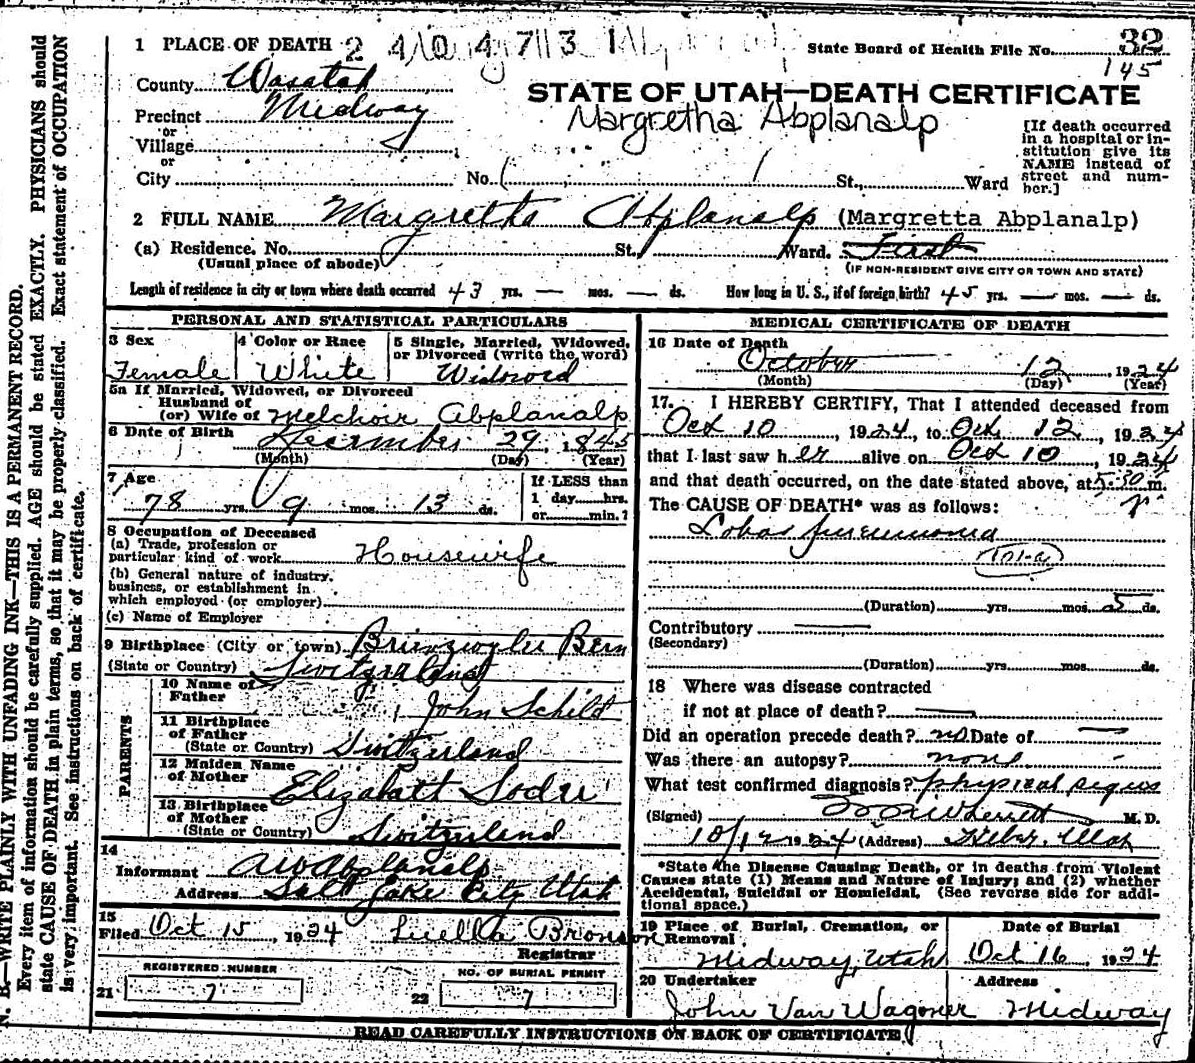 N. B.—WRITE PLAINLY WITH UNFADING INK—THIS IS A PERMANENT RECORD.
Every item of information should be carefully supplied. AGE should be stated EXACTLY. PHYSICIANS should
state CAUSE OF DEATH in plain terms, so that it may be properly classified. Exact statement of OCCUPATION
is very important. See instructions on back of certificate.
1 PLACE OF DEATH
State Board of Health File No. 32
145
County Wasatch
STATE OF UTAH—DEATH CERTIFICATE
Precinct Midway
Margretha Abplanalp
or
Village
or
City No. St., Ward
[If death occurred
in a hospital or in-
stitution give its
NAME instead of
street and num-
ber.]
2 FULL NAME Margretta Abplanalp (Margretta Abplanalp)
(a) Residence. No. St. Ward. First
(Usual place of abode)
(IF NON-RESIDENT GIVE CITY OR TOWN AND STATE)
Length of residence in city or town where death occurred 43 yrs. — mos. — ds. How long in U. S., if of foreign birth? 45 yrs. — mos. — ds.
PERSONAL AND STATISTICAL PARTICULARS
3 Sex 4 Color or Race 5 Single, Married, Widowed,
or Divorced (write the word)
Female White Widowed
5a If Married, Widowed, or Divorced
Husband of
(or) Wife of Melchoir Abplanalp
6 Date of Birth December 29, 1845
(Month) (Day) (Year)
7 Age
78 yrs. 9 mos. 13 ds.
If LESS than
1 day hrs.
or min.?
8 Occupation of Deceased
(a) Trade, profession or
particular kind of work Housewife
(b) General nature of industry,
business, or establishment in
which employed (or employer)
(c) Name of Employer
9 Birthplace (City or town) Brienzwyler Bern
(State or Country) Switzerland
PARENTS
10 Name of
Father John Schild
11 Birthplace
of Father
(State or Country) Switzerland
12 Maiden Name
of Mother Elizabatt
13 Birthplace
of Mother
(State or Country) Switzerland
14
Informant Abplanalp
Address Salt Lake City Utah
15
Filed Oct 15, 1924 Luella Bronson
Registrar
REGISTERED NUMBER
21 7
NO. OF BURIAL PERMIT
22 7
MEDICAL CERTIFICATE OF DEATH
16 Date of Death
October 12, 1924
(Month) (Day) (Year)
17. I HEREBY CERTIFY, That I attended deceased from
Oct 10, 1924, to Oct. 12, 1924
that I last saw her alive on Oct 10, 1924
and that death occurred, on the date stated above, at 5:30 m.
p
The CAUSE OF DEATH* was as follows:
Lobar pneumonia
101-a
(Duration) yrs. mos. 5 ds.
Contributory —
(Secondary)
(Duration) yrs. mos. ds.
18 Where was disease contracted
if not at place of death? —
Did an operation precede death? no Date of —
Was there an autopsy? none
What test confirmed diagnosis? physical signs
(Signed) M. D.
10/12 1924 (Address) Heber, Utah
*State the Disease Causing Death, or in deaths from Violent
Causes state (1) Means and Nature of Injury; and (2) whether
Accidental, Suicidal or Homicidal. (See reverse side for addi-
tional space.)
19 Place of Burial, Cremation, or
Removal
Date of Burial
Midway, Utah Oct 16, 1924
20 Undertaker Address
John Van Wagoner Midway
READ CAREFULLY INSTRUCTIONS ON BACK OF CERTIFICATE